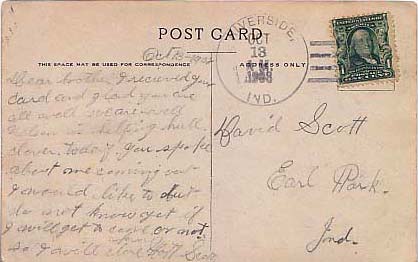 POST CARD
THIS SPACE MAY BE USED FOR CORRESPONDENCE
ADDRESS ONLY
RIVERSIDE,
OCT
13
1908
IND.
Oct 13 - 1908
Dear brother I recieved your
card and glad you are
all well we are well
is helping hull
clover today you spoke
about me coming out
I would like to but
do not know yet if
I will get to come or not
so I will close Scott
David Scott
Earl Park.
Ind.